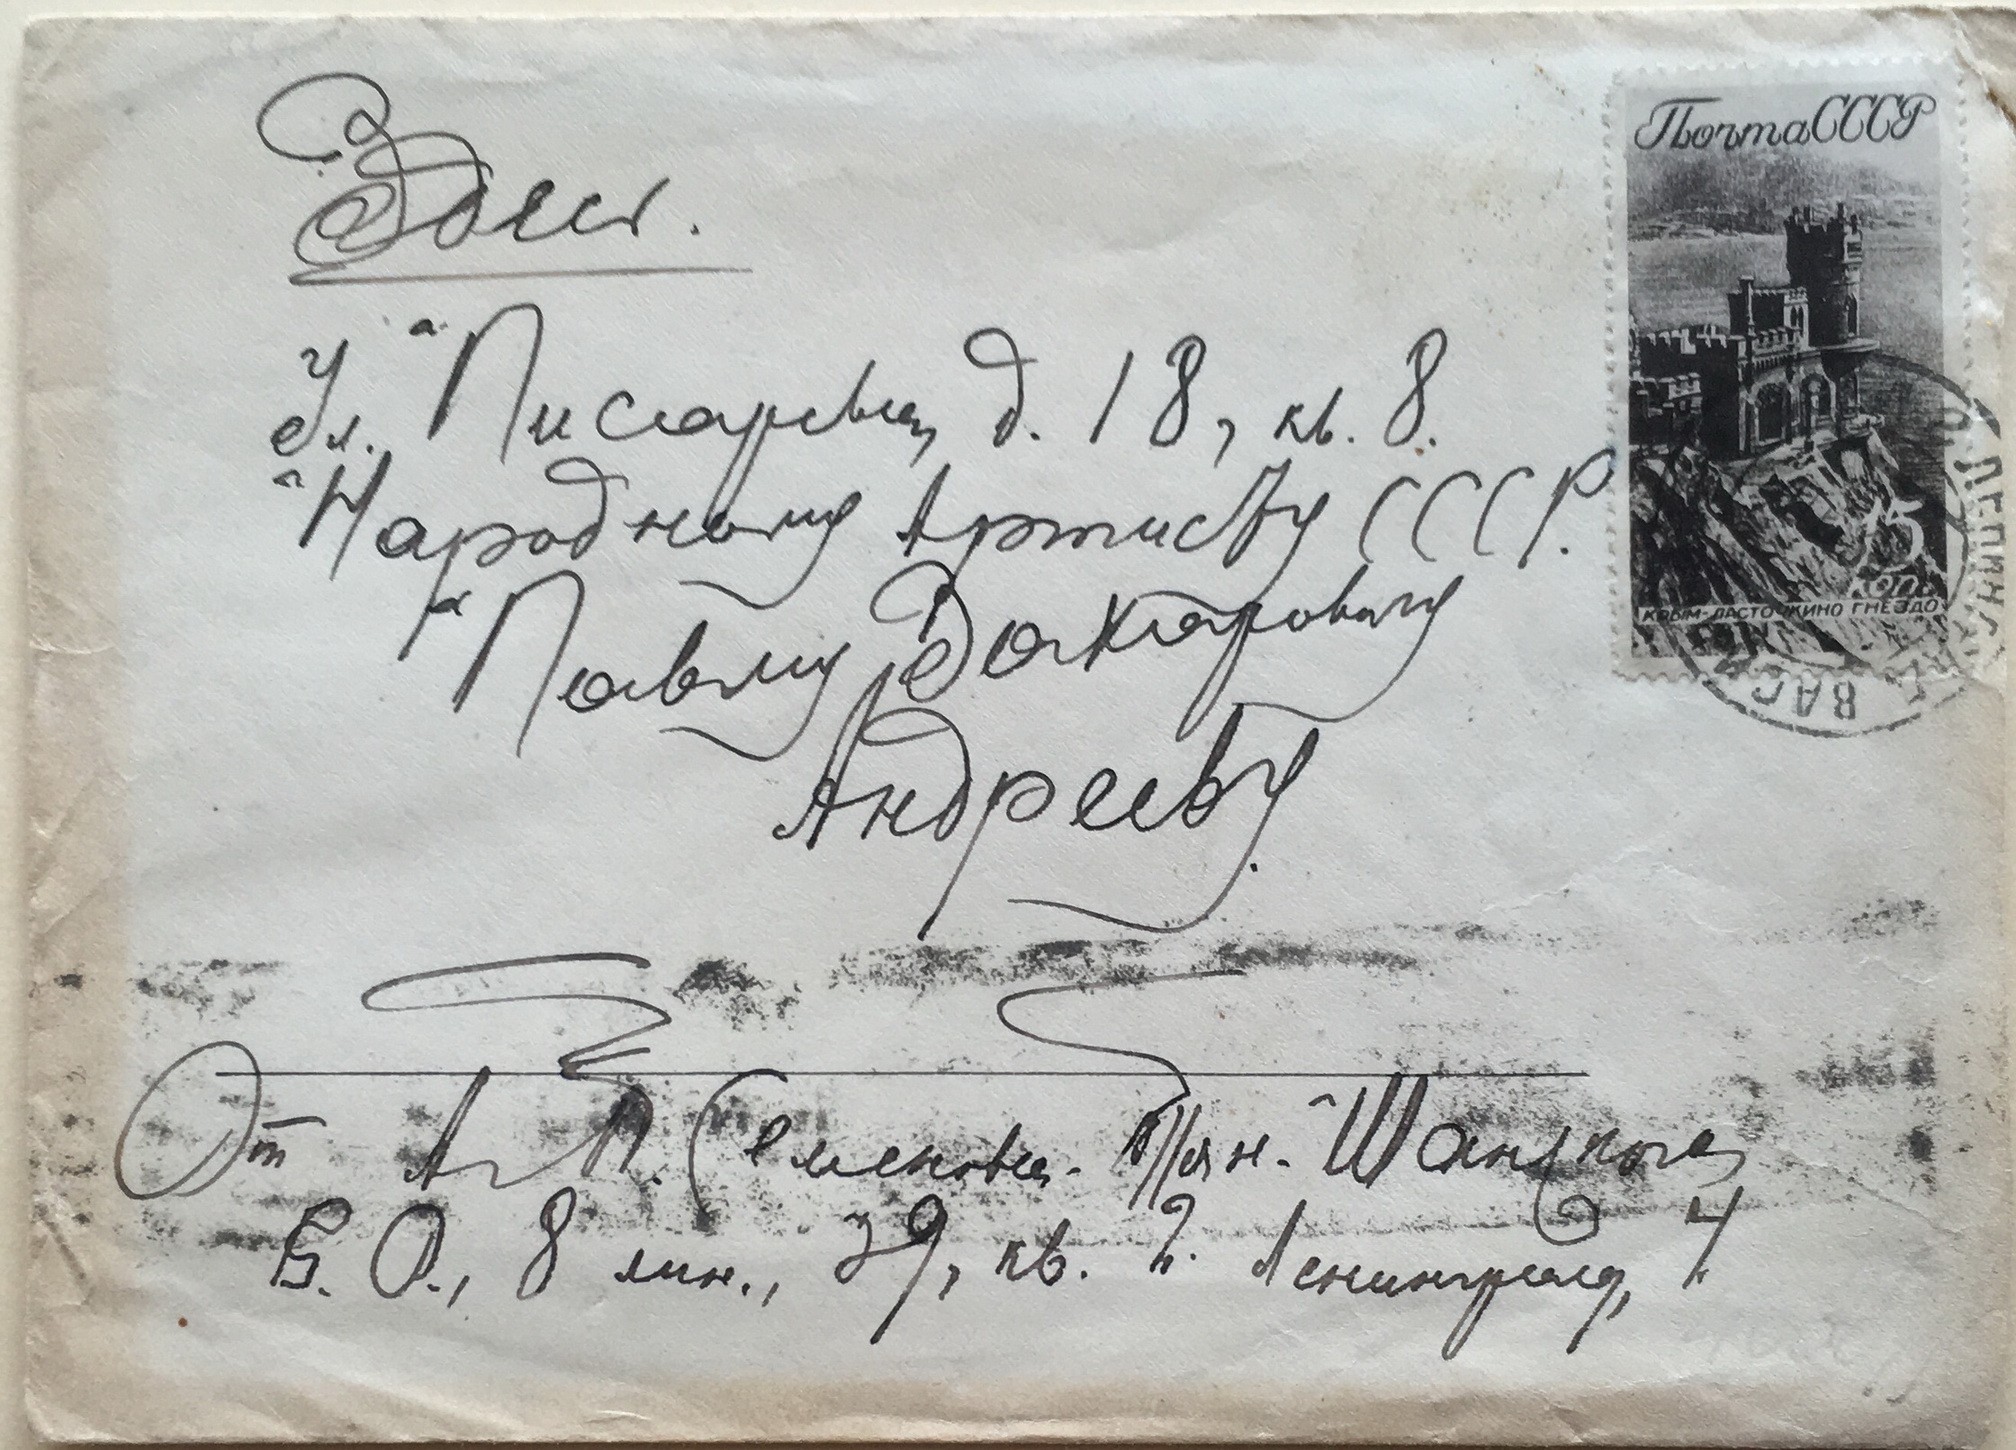 Здесь.
Почта СССР
Ул. Писарева, д. 18, кв. 8.
Народному Артисту СССР.
Павлу Захаровичу
Андрееву.
15
коп.
КРЫМ-ЛАСТОЧКИНО ГНЕЗДО
ЛЕНИНГРАД
ВАС
От А. П. Семенова-Тян-Шанского
В. О., 8 лин., 39, кв. 2. Ленинград, 4